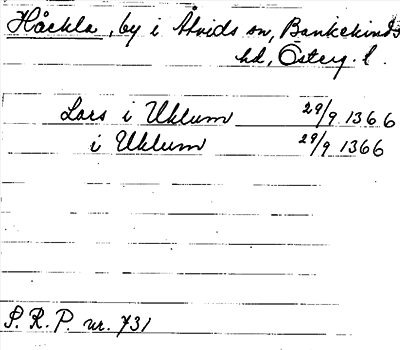 Håckla, by i Åtvids sn, Bankekinds
hd, Österg. l.
Lars i Uklum 29/9 1366
i Uklum 29/9 1366
P. R. P. nr. 731